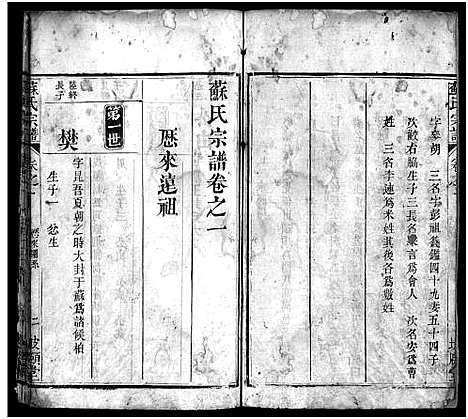 蘇氏宗譜
字季胡 三名字彭祖籛鑑四十九妻五十四子
次歀右脇生子三長名衆言爲會人 次名安爲曹
姓 三名季連爲米姓其後各子爲數姓
蘇氏宗譜卷之一
歷來遠祖
第一世
陸終
長子
樊
字昆吾夏朝之時大封于蘇爲諸侯柏
生子一 忿生
蘇氏宗譜
卷之一
二